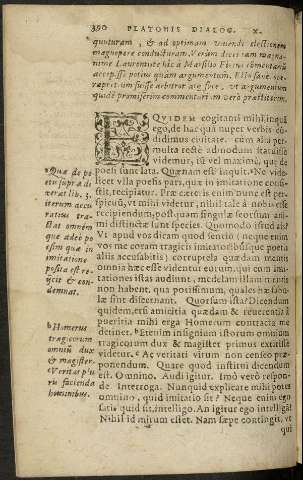 390 PLATONIS DIALOG. X.
quuturam, & ad optimam viuendi electionem
magnopere conducturam. Verùm dicet iam magna-
nime Laurenti: hîc à Marsilio Ficino commentariū
accepisse potius quàm argumentum. Ille sane
arbitror atque sine, vt argumentum
quidē promiserim commentarium verò præstiterim.
EQVIDEM cogitanti mihi, inquā
ego, de hac quā nuper verbis cō-
didimus ciuitate, cùm alia per-
multa rectè admodum statuisse
videmur, tū vel maximù, quæ de
poësi sunt lata. Quænam est? inquit. Ne vide-
licet vlla poësis pars, quæ in imitatione consi-
stit, recipiatur. Præ cæteris enim nunc est per-
spicuū, vt mihi videtur, nihil tale à nobis esse
recipiendum, postquam singulæ seorsum ani-
mi distinctæ sunt species. Quomodo istud ais?
Vt apud vos dicam quod sentio (neque enim
vos me coram tragicis imitatoribusque poëta
aliis accusabitis) corruptela quædam mentis
omnia hæc esse videntur eorum, qui cum imi-
tationes istas audiunt, medelam illam mentis
non habent, qua possint, qualia hæc sūt
illæ sint discernant. Quorsum ista? Dicendum
quidem, etsi amicitia quædam & reuerentia à
pueritia mihi erga Homerum contracta me
dicere inhibet. b Etenim insignium istorum omnium
tragicorum dux & magister primus extitisse
videtur. c Ac veritati virum non censeo præ-
ponendum. Quare quod institui dicendum
est. Omnino. Audi igitur. Imò verò respon-
de. Interroga. Nunquid explicare mihi potes
omnino, quid imitatio sit? Neque enim ego
satis quid sit, intelligo. An igitur ego intelligā?
Nihil id mirum esset. Nam sæpe contingit, vt
qui
a Quæ de po
etis supra di
xerat lib. 3.
iterum accu
ratius tra-
ctat omnēm
que adeò po
esim quæ in
imitatione
posita est re-
ijcit & con-
demnat.
b Homerus
tragicorum
omniū dux
& magister.
c Veritas plu
ris facienda
hominibus.